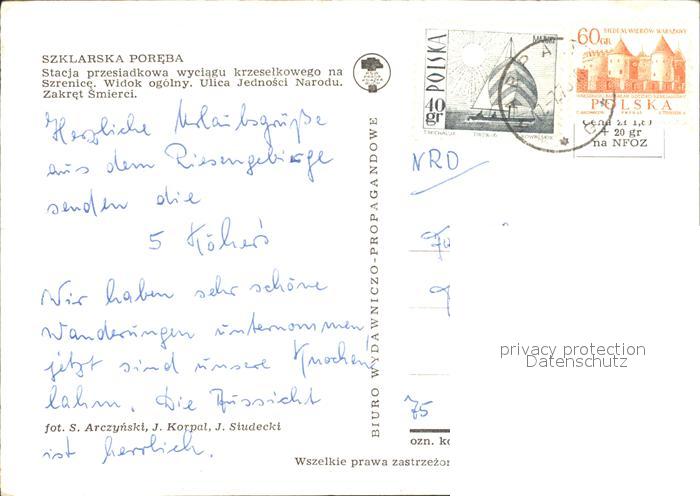 SZKLARSKA PORĘBA
Stacja przesiadkowa wyciągu krzesełkowego na
Szrenicę. Widok ogólny. Ulica Jedności Narodu.
Zakręt Śmierci.
Herzliche Urlaubsgrüße
aus dem Riesengebirge
senden die
5 Köhler's
Wir haben sehr schöne
Wanderungen unternommen
jetzt sind unsere Knochen
lahm. Die Aussicht
fot. S. Arczyński, J. Korpal, J. Siudecki
ist herrlich.
Wszelkie prawa zastrzeżon
BIURO WYDAWNICZO-PROPAGANDOWE
POLSKA
40 gr
60 GR
POLSKA
+ 20 gr
na NFOZ
NRD
privacy protection
Datenschutz
75
ozn. ko